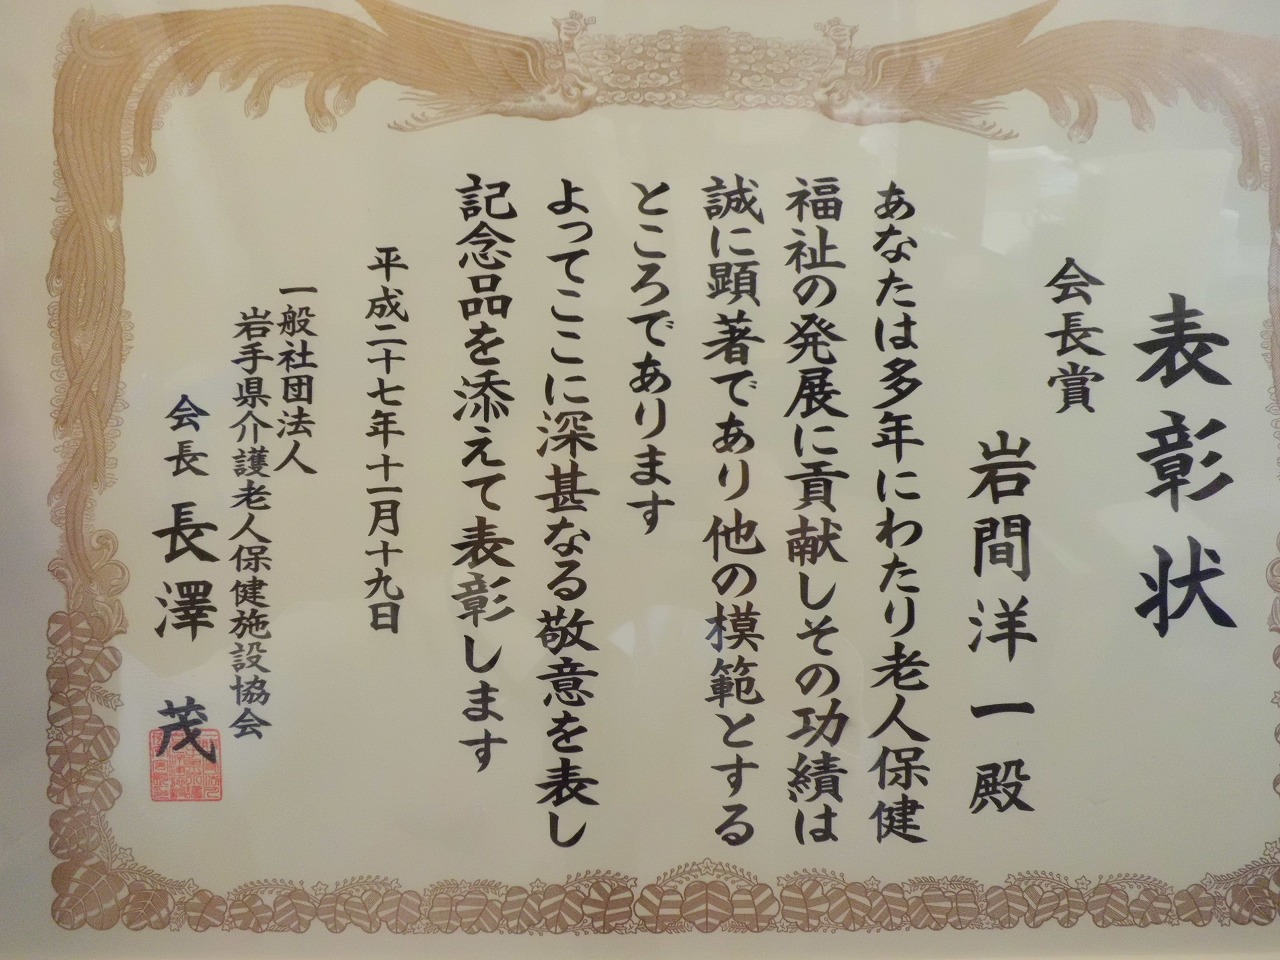 表彰状
会長賞
岩間洋一殿
あなたは多年にわたり老人保健
福祉の発展に貢献しその功績は
誠に顕著であり他の模範とする
ところであります
よってここに深甚なる敬意を表し
記念品を添えて表彰します
平成二十七年十一月十九日
一般社団法人
岩手県介護老人保健施設協会
会長 長澤 茂